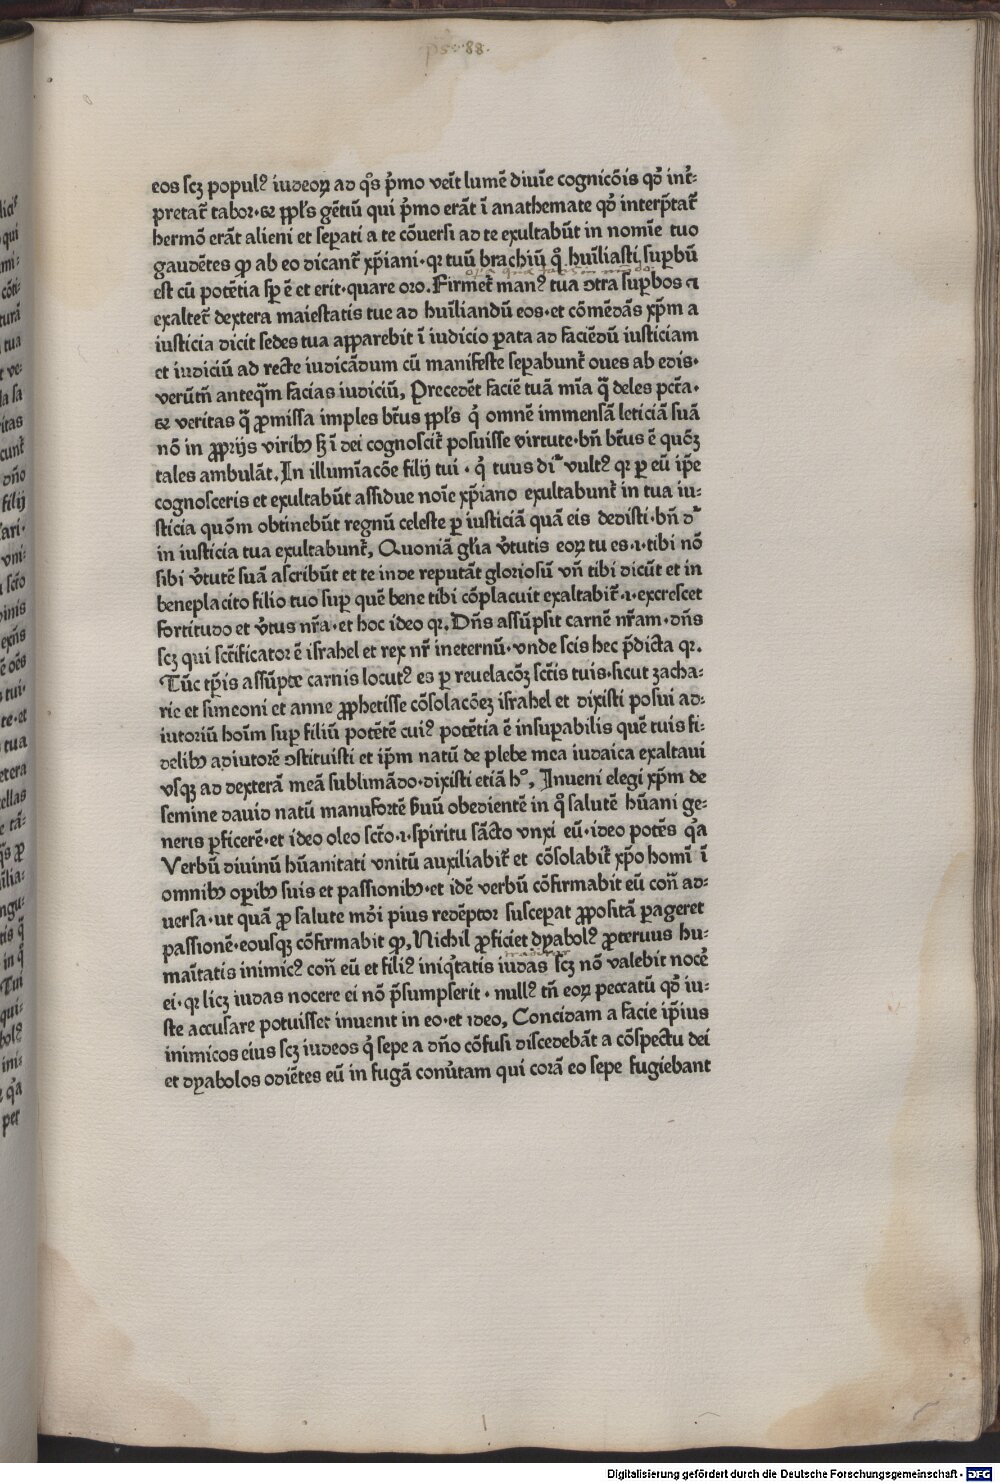 ps. 88.
eos scz popul⁹ iudeoꝝ ad q̄s p̄mo veīt lumē diuīe cognicōis qd̓ int̓:
pretat᷑ tabor·⁊ ppl̄s gētiū qui p̄mo erāt ī anathemate qd̓ interp̄tat᷑
hermō erāt alieni et seꝑati a te cōuersi ad te exultabūt in nomīe tuo
gaudētes ꝙ ab eo dicant᷑ xp̄iani·qꝛ tuū brachiū q̓ hūiliasti suꝑbū
est cū potētia sꝑ ē et erit·quare oro. Firmet᷑ man⁹ tua ↄtra suꝑbos ⁊
exaltet᷑ dextera maiestatis tue ad hūiliandū eos·et cōmēdās xp̄m a
iusticia dicit sedes tua apparebit ī iudicio ꝑata ad faciēdū iusticiam
et iudiciū ad recte iudicādum cū manifeste seꝑabunt᷑ oues ab edis·
verūtn̄ anteq̄m facias iudiciū, Precedēt faciē tuā mīa q̄ deles pctā·
⁊ veritas q̄ ꝓmissa imples bt̄us ppl̄s q̓ omnē immensā leticiā suā
nō in ꝓprijs viribꝰ sꝫ ī dei cognoscit᷑ posuisse virtute·bn̄ bt̄us ē quōꝫ
tales ambulāt. In illumīacōe filij tui · q̓ tuus di᷑ vult⁹ qꝛ ꝑ eū ip̄e
cognosceris et exultabūt assidue noīe xp̄iano exultabunt᷑ in tua iu:
sticia quōm obtinebūt regnū celeste ꝑ iusticiā quā eis dedisti·bn̄ d᷑
in iusticia tua exultabunt᷑, Quoniā gl̄ia v̓tutis eoꝝ tu es·i·tibi nō
sibi v̓tutē suā ascribūt et te inde reputāt gloriosū vn̄ tibi dicūt et in
beneplacito filio tuo suꝑ quē bene tibi cōplacuit exaltabit᷑·i·excrescet
fortitudo et v̓tus nr̄a·et hoc ideo qꝛ. Dn̄s assūpsit carnē nr̄am·dn̄s
scz qui sct̄ificator ē israhel et rex nr̄ ineternū·vnde scis hec p̄dicta qꝛ.
Tūc tp̄is assūpte carnis locut⁹ es ꝑ reuelacōꝫ sct̄is tuis·sicut zacha:
rie et simeoni et anne ꝓphetisse cōsolacōeꝫ israhel et dixisti posui ad:
iutoriū hoīm suꝑ filiū potētē cui⁹ potētia ē insuꝑabilis quē tuis fi:
delibꝰ adiutorē ↄstituisti et ip̄m natū de plebe mea iudaica exaltaui
vsqꝫ ad dexterā meā sublimādo·dixisti etiā h°, Inueni elegi xp̄m de
semine dauid natū manufortē ẜuū obedientē in q̓ salutē hūani ge:
neris ꝑficerē·et ideo oleo sct̄o·i·spiritu sācto vnxi eū·ideo potēs q̓a
Verbū diuinū hūanitati vnitū auxiliabit᷑ et cōsolabit᷑ xp̄o homī ī
omnibꝰ oꝑibꝰ suis et passionibꝰ·et idē verbū cōfirmabit eū con̄ ad:
uersa·ut quā ꝓ salute mōi pius redēptor susceꝑat ꝓpositā ꝑageret
passionē·eousqꝫ cōfirmabit ꝙ, Nichil ꝓficiet dyabol⁹ ꝓteruus hu:
maītatis inimic⁹ con̄ eū et fili⁹ iniq̓tatis iudas scz nō valebit nocē
ei·qꝛ licꝫ iudas nocere ei nō p̄sumpserit · null⁹ tn̄ eoꝝ peccatū qd̓ iu:
ste accusare potuisset inuenit in eo·et ideo, Concidam a facie ip̄ius
inimicos eius scz iudeos q̓ sepe a dn̄o cōfusi discedebāt a cōspectu dei
et dyabolos odiētes eū in fugā conu̓tam qui corā eo sepe fugiebant
Digitalisierung gefördert durch die Deutsche Forschungsgemeinschaft - DFG